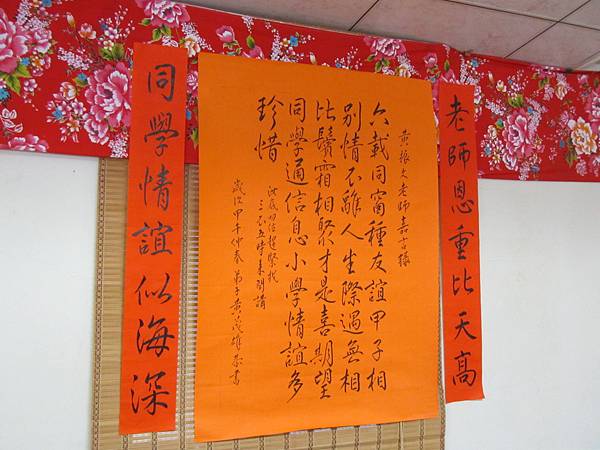 老師恩重比天高
黃振文老師嘉言錄
六載同窗種友誼甲子相
別情不離人生際遇無相
比鬢霜相聚才是喜期望
同學通信息小學情誼多
珍惜
歲次甲午仲春 弟子黃茂雄恭書
同學情誼似海深